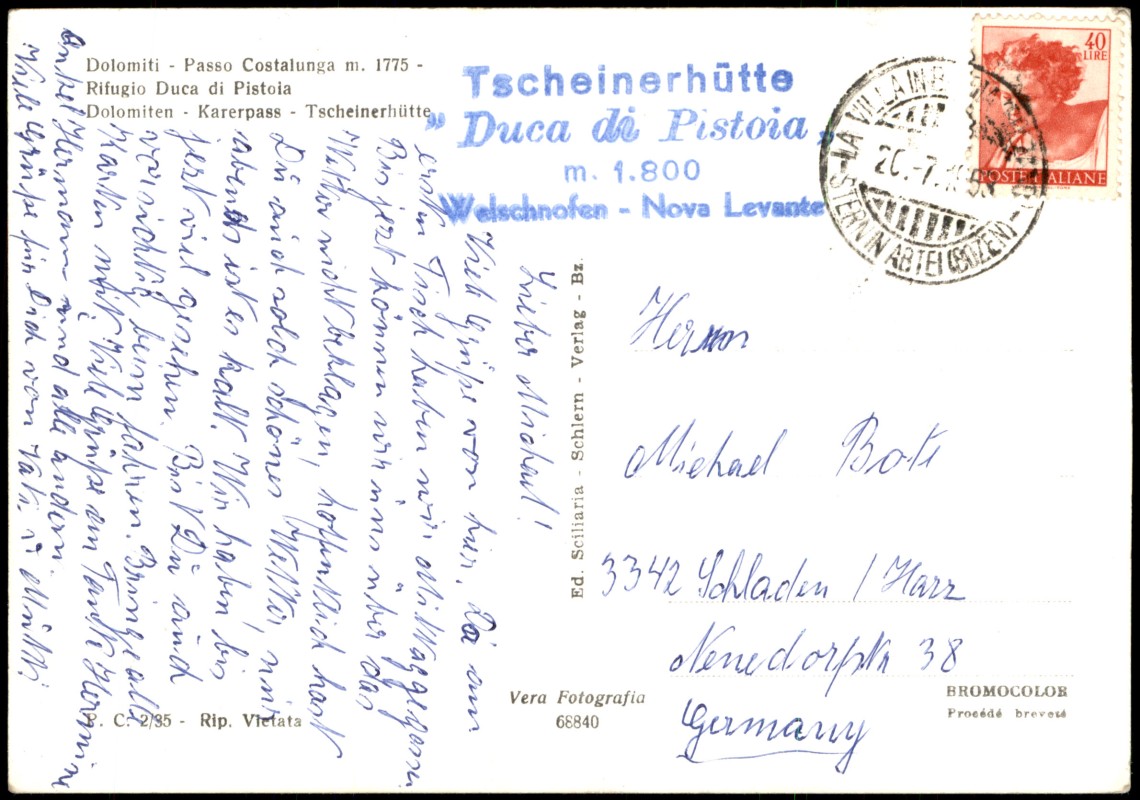 Dolomiti - Passo Costalunga m. 1775 -
Rifugio Duca di Pistoia
Dolomiten - Karerpass - Tscheinerhütte
Tscheinerhütte
„ Duca di Pistoia „
m. 1.800
Welschnofen - Nova Levante
LA VILLA IN BADIA
20.-7.
STERN IN ABTEI (BOZEN)
40
LIRE
POSTE ITALIANE
Lieber Michael!
Viele Grüße von hier. Da am
ersten Tisch haben wir Mittaggegessen.
Bis jezt können wir uns über das
Wetter nicht beklagen, hoffentlich hast
Du auch solch schönes Wetter, nur
abends ist es kalt. Wir haben bis
jezt viel gesehen. Bist Du auch
vorsichtig beim fahren. Bringe alle
Karten mit. Viele Grüße an Tante Hermine
Onkel Hermann und alle andern.
Viele Grüße für Dich von Vati u Mutti
Ed. Sciliaria - Schlern - Verlag - Bz.
Herrn
Michael Bote
3342 Schladen / Harz
38
Germany
P. C. 2/35 - Rip. Vietata
Vera Fotografia
68840
BROMOCOLOR
Procédé breveté